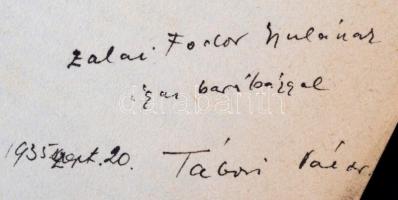 Zalai Fodor Gyulának
igaz barátsággal
1935 szept. 20. Tábori Pál